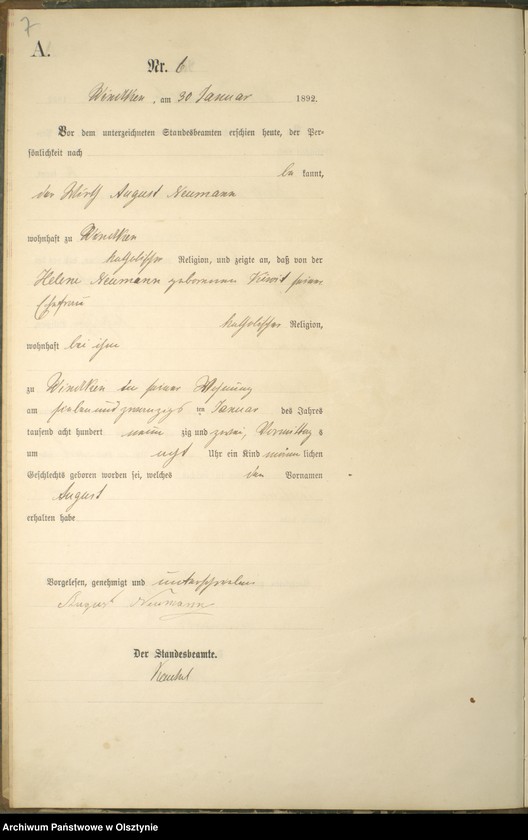 7
A.
Nr. 6
Windtken, am 30 Januar 1892.
Vor dem unterzeichneten Standesbeamten erschien heute, der Per-
sönlichkeit nach
be kannt,
der Wirth August Neumann
wohnhaft zu Windtken
katholischer Religion, und zeigte an, daß von der
Helene Neumann geborenen seiner
Ehefrau
katholischer Religion,
wohnhaft bei ihm
zu Windtken in seiner Wohnung
am sieben und zwanzigs ten Januar des Jahres
tausend acht hundert neun zig und zwei, Vormittag s
um acht Uhr ein Kind männ lichen
Geschlechts geboren worden sei, welches den Vornamen
August
erhalten habe
Vorgelesen, genehmigt und unterschrieben
August Neumann
Der Standesbeamte.
Archiwum Państwowe w Olsztynie